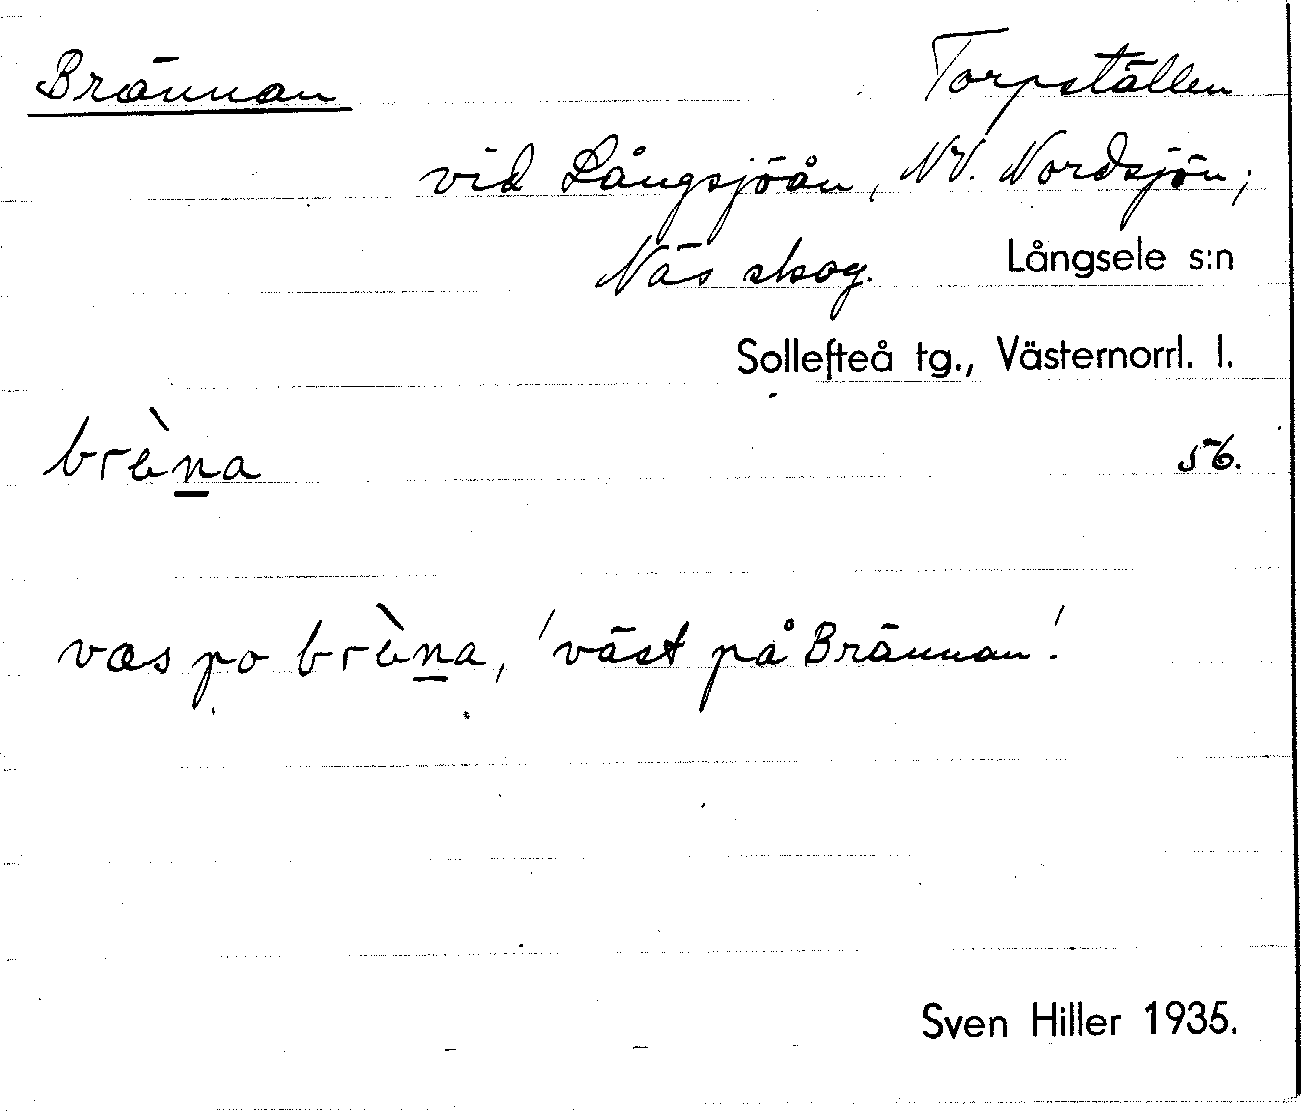 Brännan Torpställen
vid Långsjöån, NV. Nordsjön;
Näs skog. Långsele s:n
Sollefteå tg., Västernorrl. l.
brèn̲a 56.
væs po brèn̲a, 'väst på Brännan'.
Sven Hiller 1935.